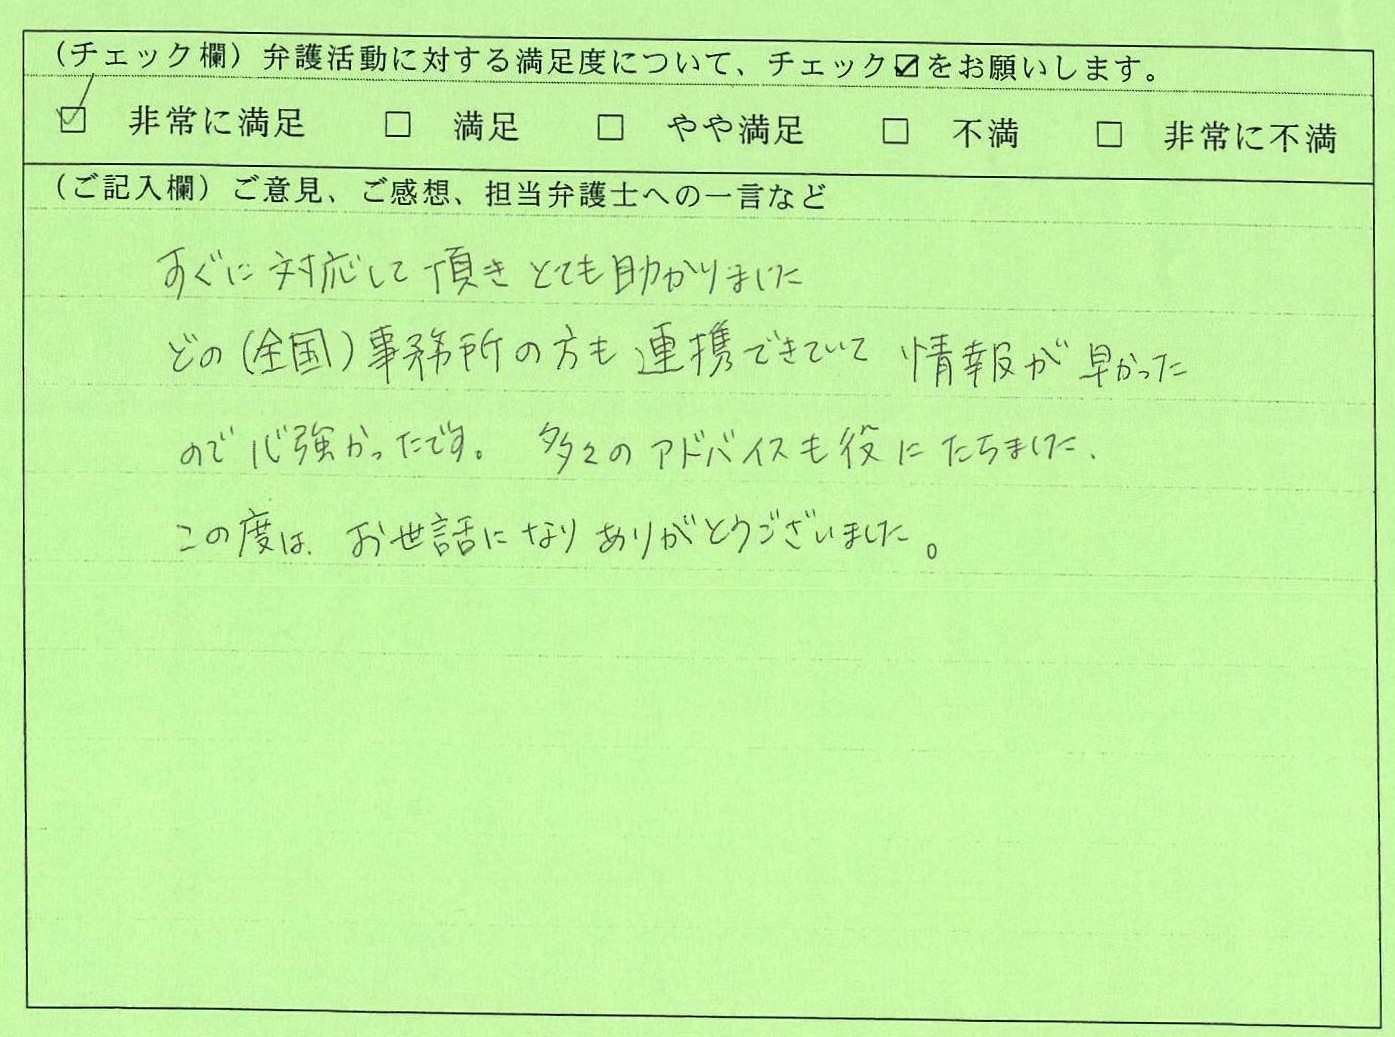 (チェック欄) 弁護活動に対する満足度について、チェック☑をお願いします。
☑ 非常に満足 □ 満足 □ やや満足 □ 不満 □ 非常に不満
(ご記入欄) ご意見、ご感想、担当弁護士への一言など
すぐに対応して頂きとても助かりました
どの(全国)事務所の方も連携できていて 情報が早かった
ので心強かったです。 多々のアドバイスも役にたちました、
この度は、お世話になりありがとうございました。